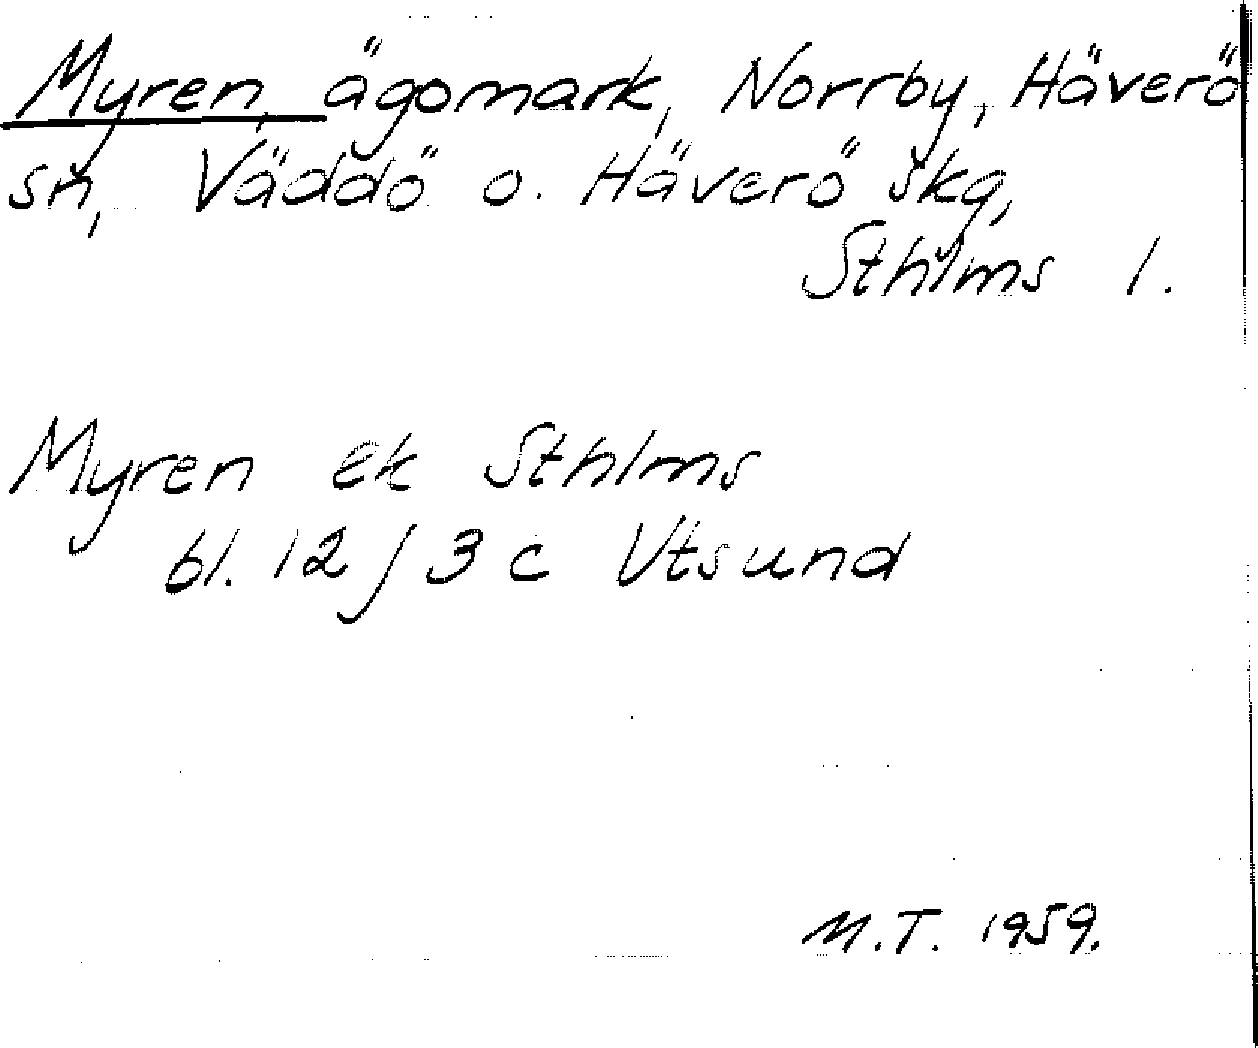 Myren, ägomark, Norrby, Häverö
sn, Väddö o. Häverö skg,
Sthlms l.
Myren ek Sthlms
bl. 12 j 3 c Utsund
M.T. 1959.